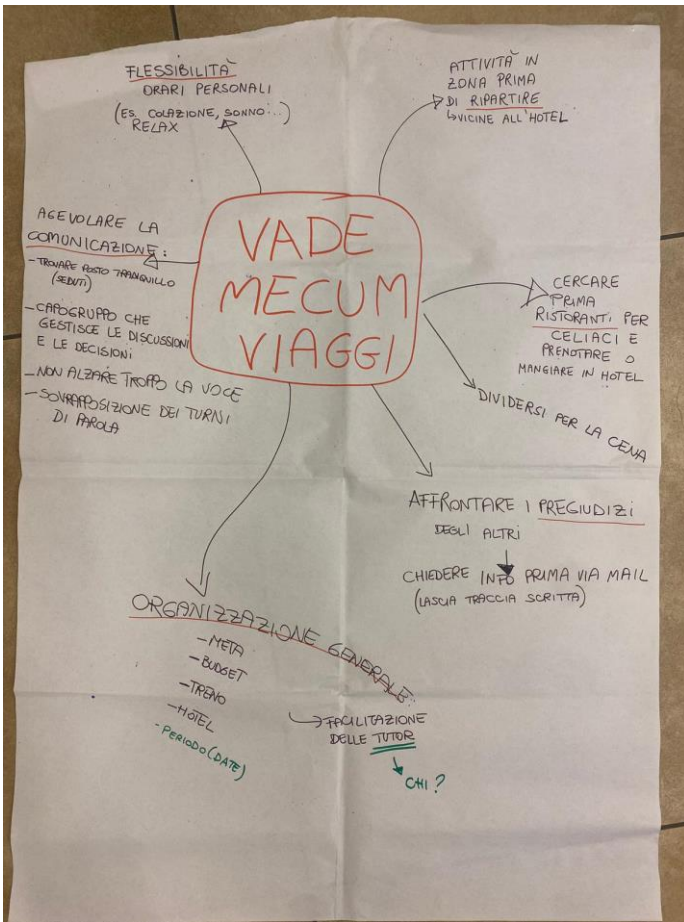 FLESSIBILITÀ
ORARI PERSONALI
(ES. COLAZIONE, SONNO...)
RELAX
ATTIVITÀ IN
ZONA PRIMA
DI RIPARTIRE
↳VICINE ALL'HOTEL
VADE
MECUM
VIAGGI
AGEVOLARE LA
COMUNICAZIONE:
-TROVARE POSTO TRANQUILLO
(SEDUTI)
-CAPOGRUPPO CHE
GESTISCE LE DISCUSSIONI
E LE DECISIONI
-NON ALZARE TROPPO LA VOCE
-SOVRAPPOSIZIONE DEI TURNI
DI PAROLA
CERCARE
PRIMA
RISTORANTI PER
CELIACI E
PRENOTARE O
MANGIARE IN HOTEL
DIVIDERSI PER LA CENA
AFFRONTARE I PREGIUDIZI
DEGLI ALTRI
CHIEDERE INFO PRIMA VIA MAIL
(LASCIA TRACCIA SCRITTA)
ORGANIZZAZIONE GENERALE:
-META
-BUDGET
-TRENO
-HOTEL
-PERIODO (DATE)
↳FACILITAZIONE
DELLE TUTOR
CHI?